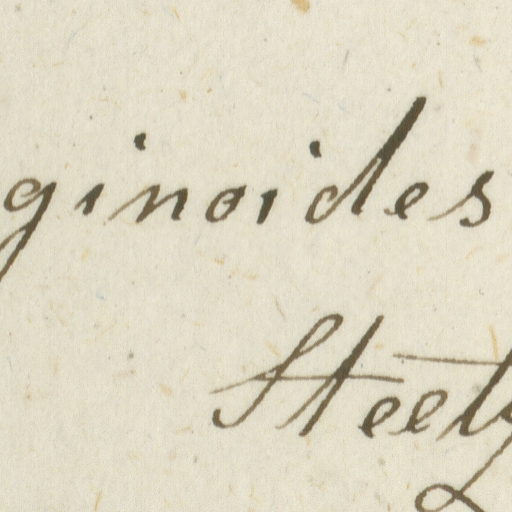 ginoides
Steetz